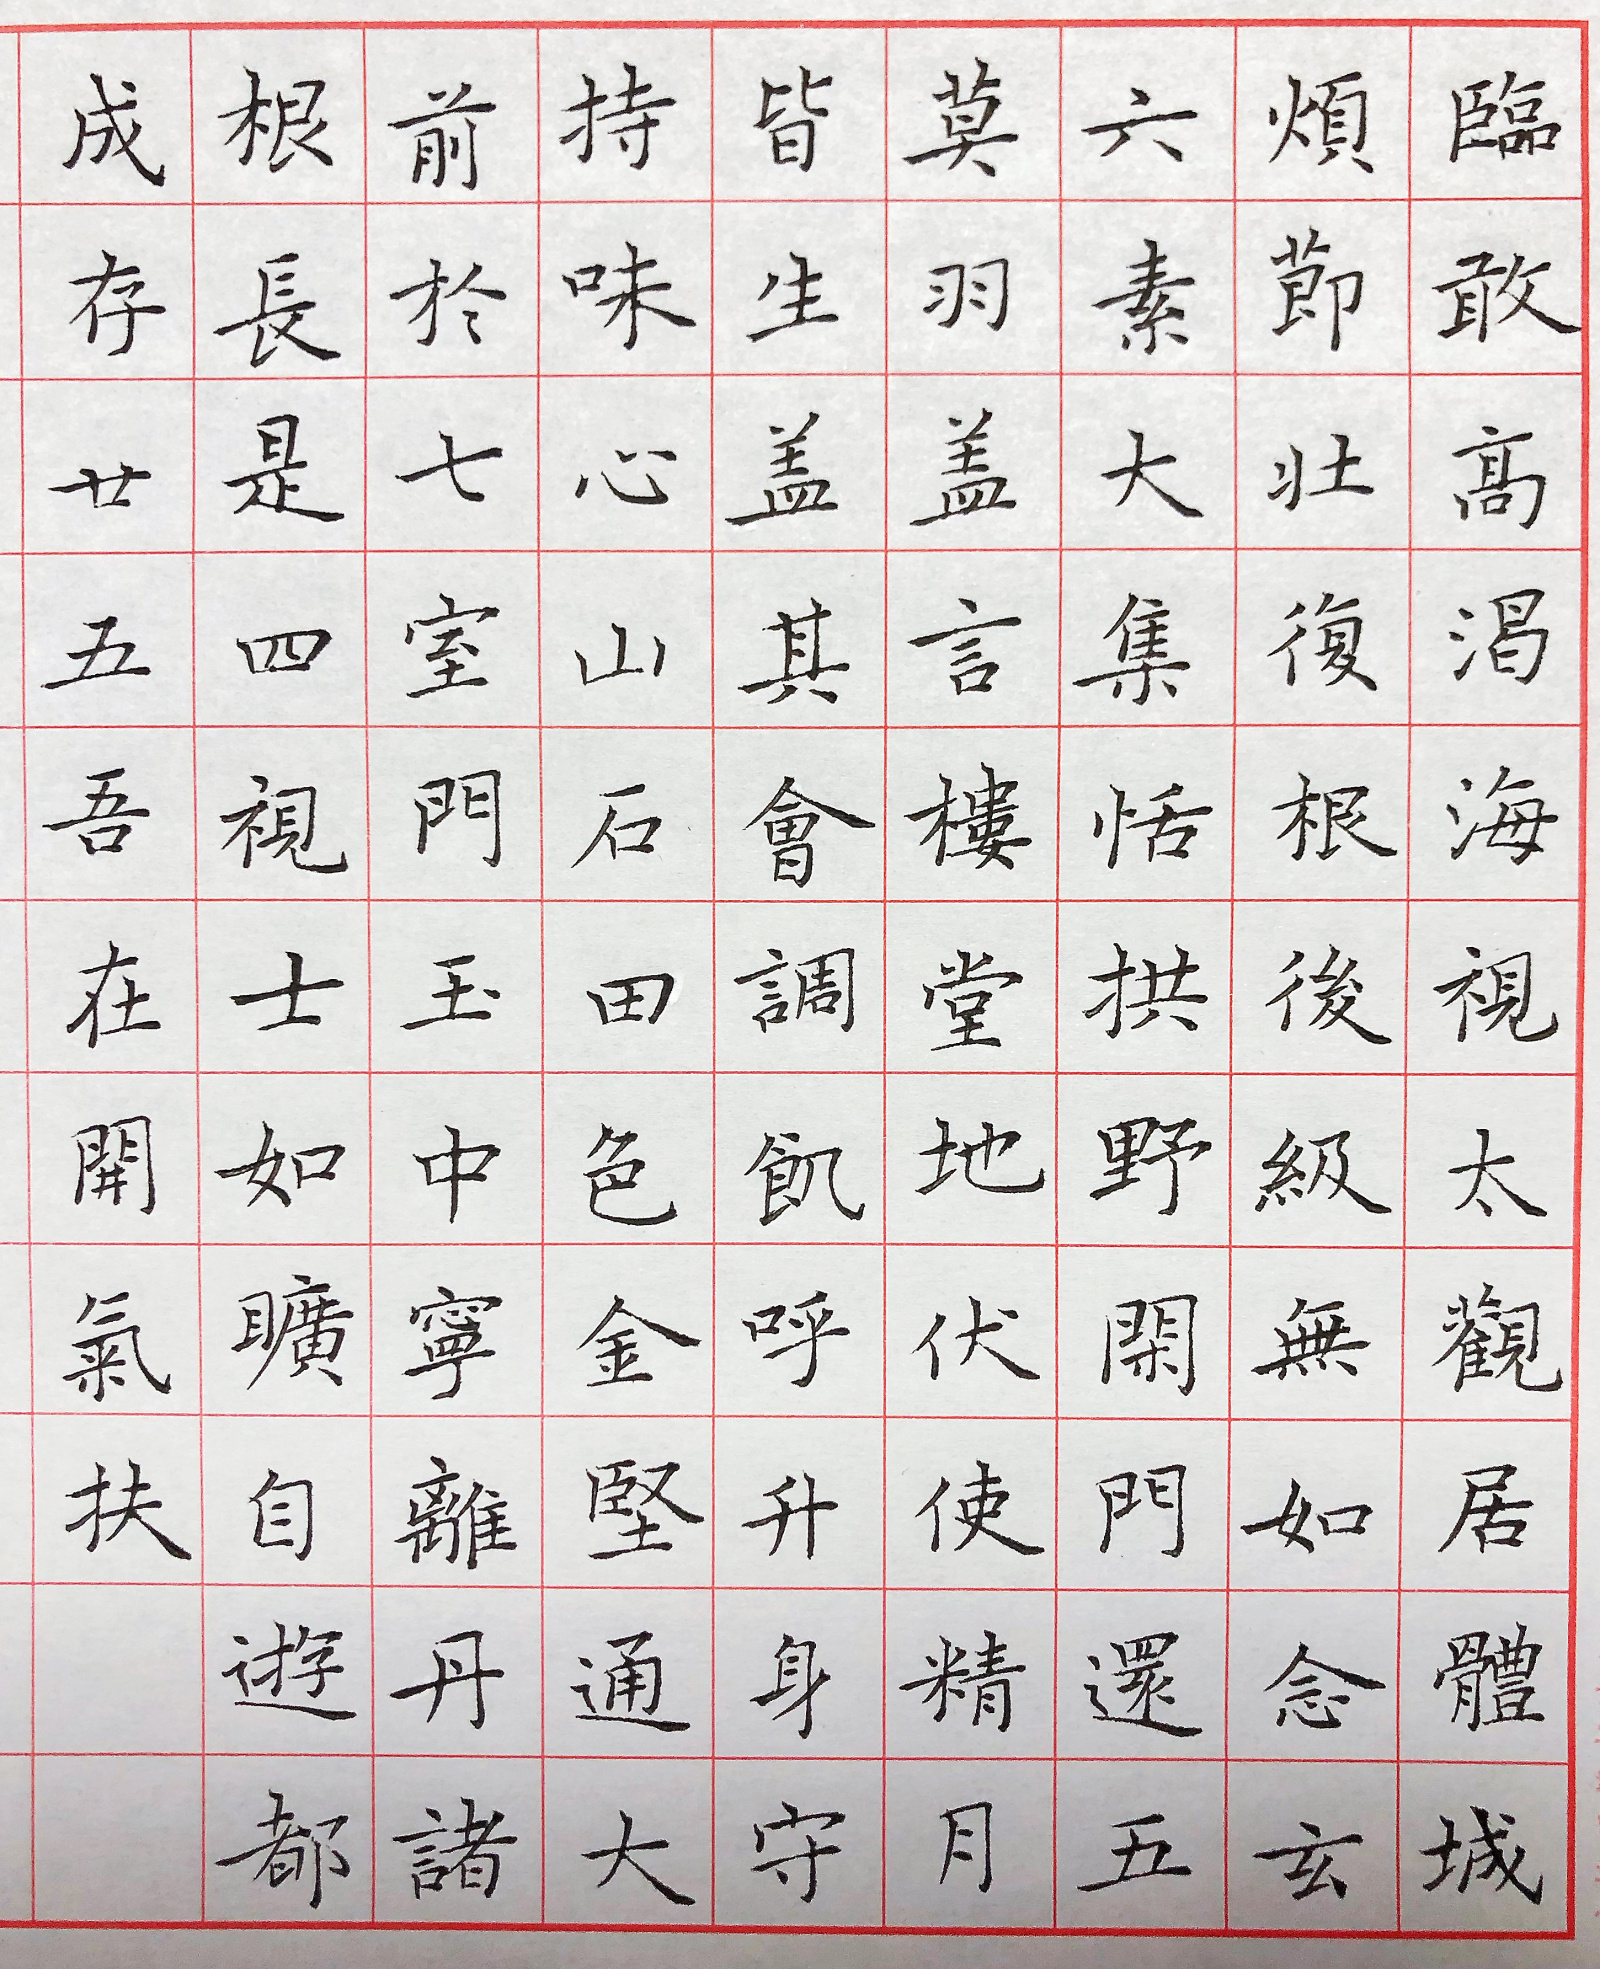 臨敢高渴海視太觀居體城
煩莭壯復根後級無如念玄
六素大集恬拱野閑門還五
莫羽盖言樓堂地伏使精月
皆生盖其會調飢呼升身守
持味心山石田色金堅通大
前於七室門玉中寧離丹諸
根長是四視士如曠自遊都
成存廿五吾在開氣扶